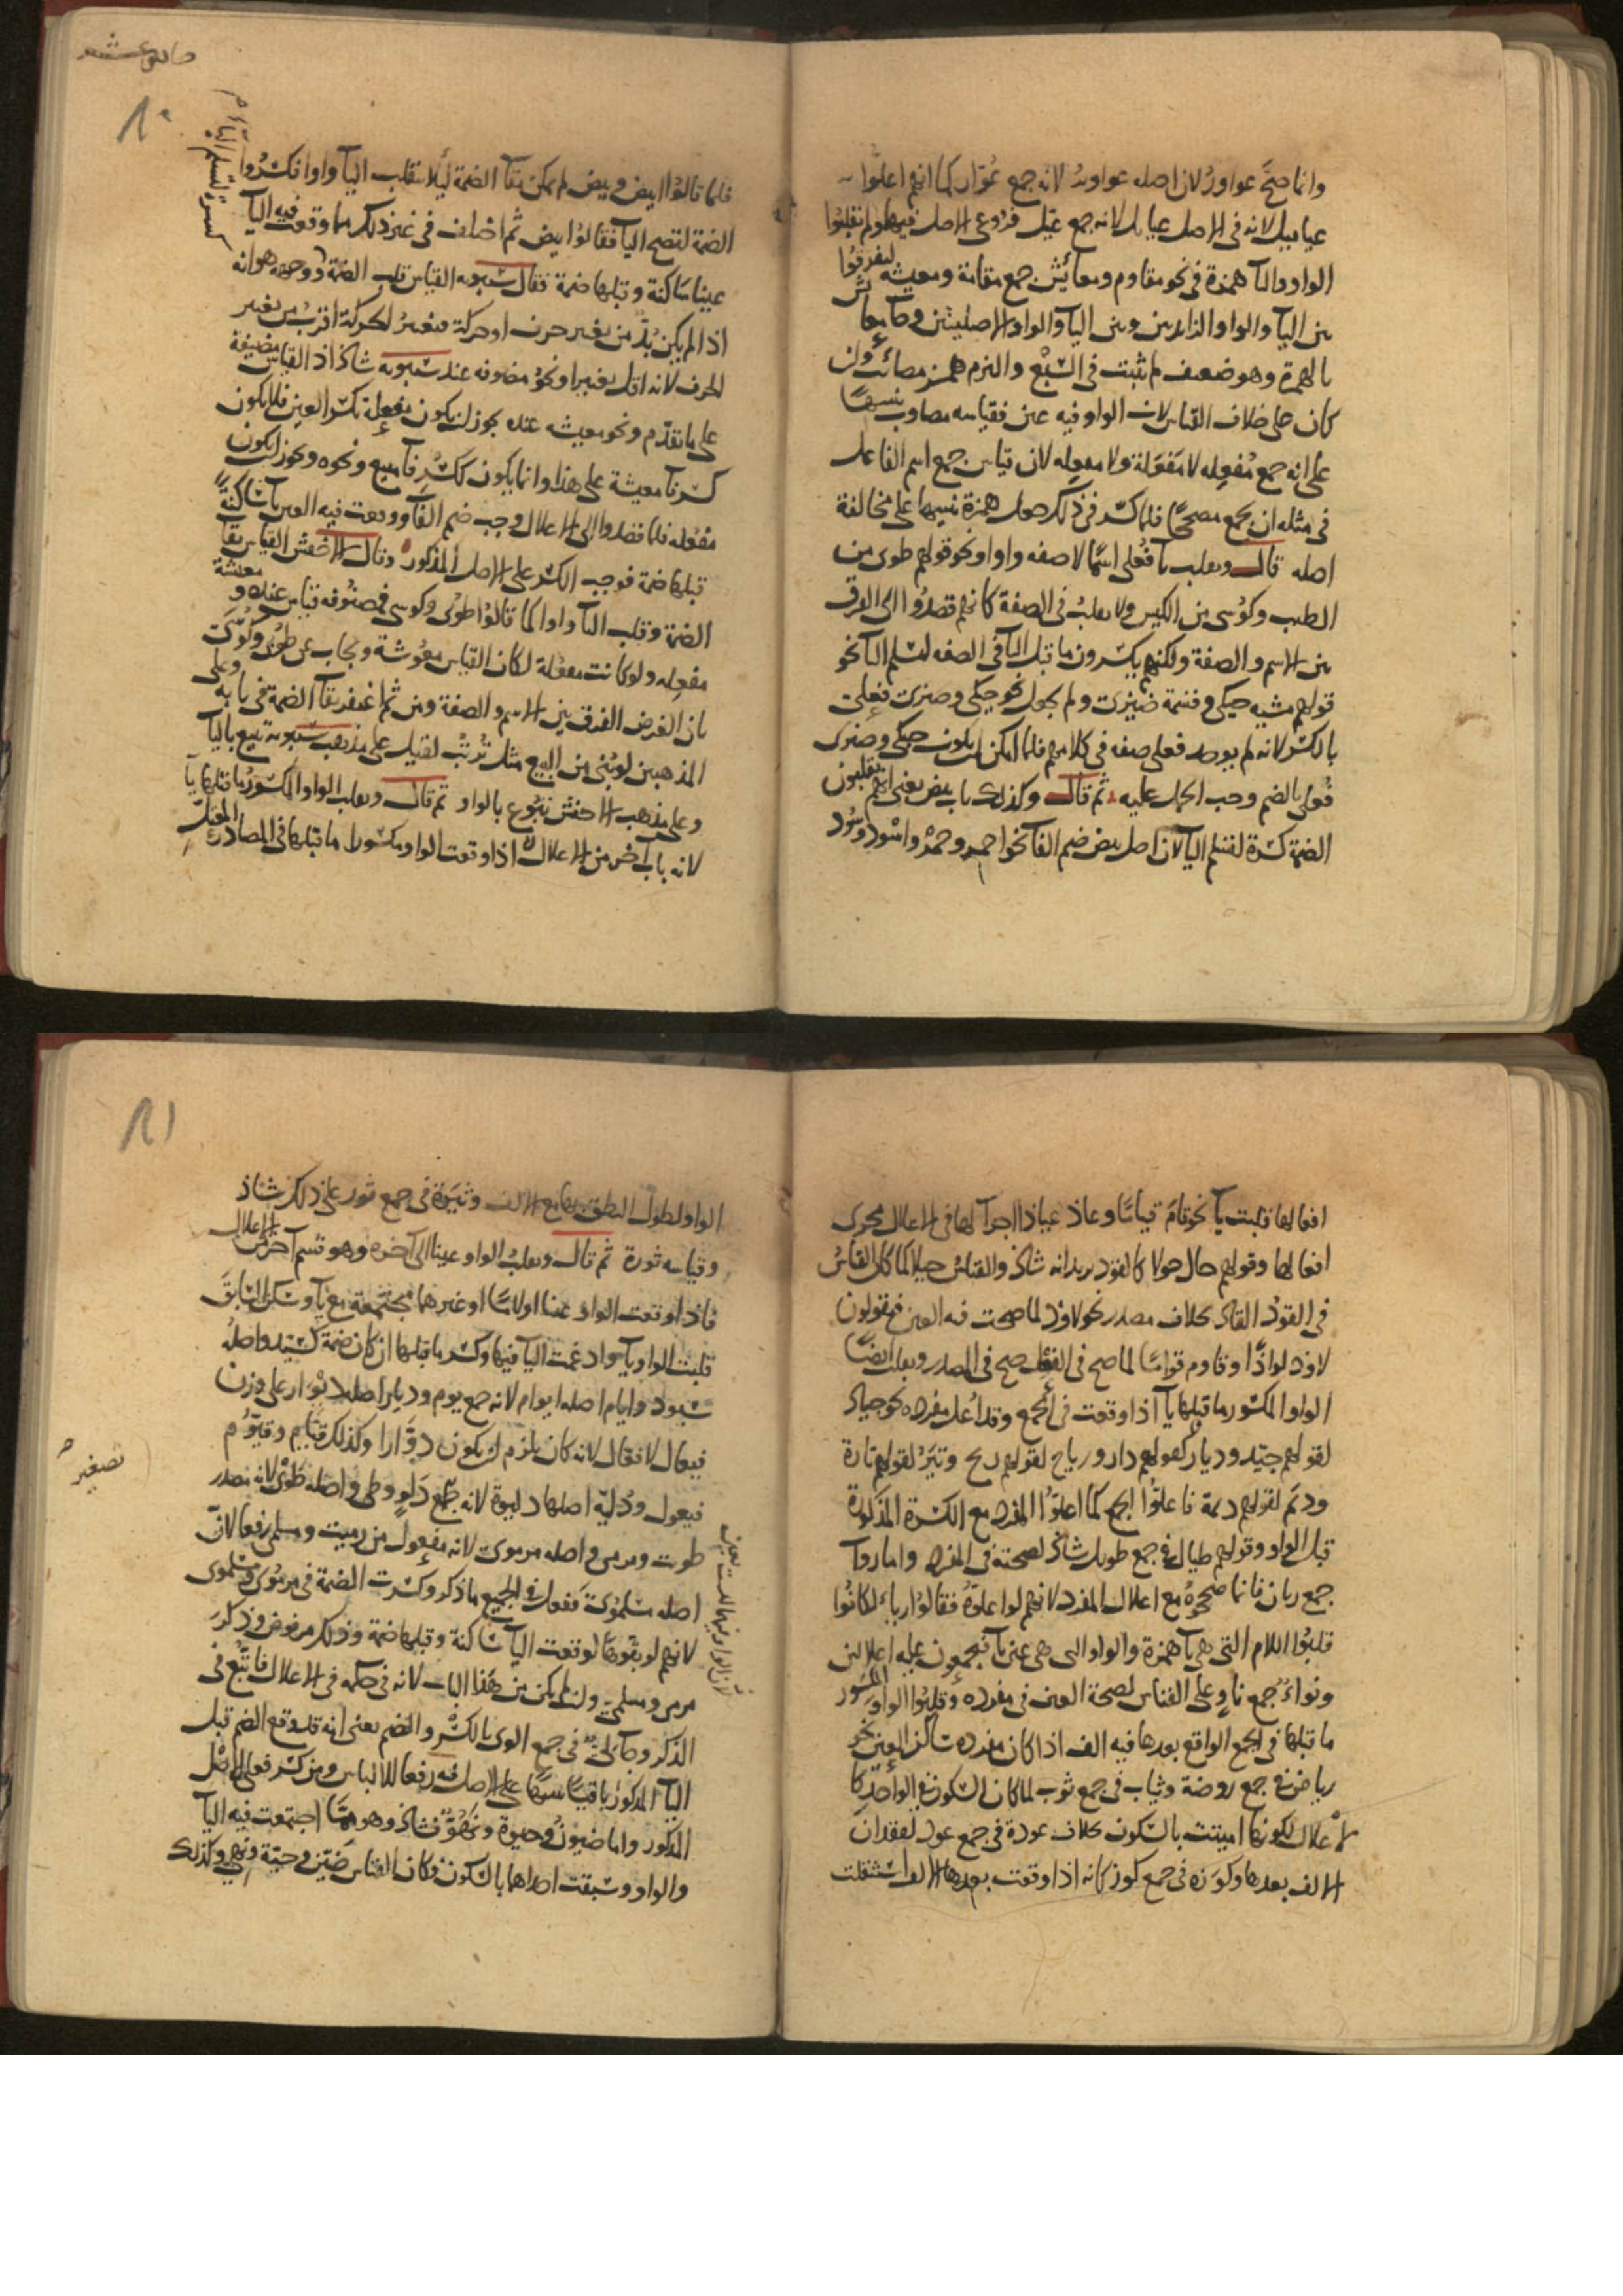 وانما صح عواور لان اصله عواوير لانه جمع عوار كما انهم اعلوا
عياييل لانه في الاصل عيايل لانه جمع عيل فروعي الاصل فيهما ولم تقلبوا
الواو والياء همزة في نحو مقاوم ومعائش جمع مقامة ومعيشه ليفرقوا
بين الياء والواو الزائدتين وبين الياء والواو الاصليتين وجاء معائش
بالهمزة وهو ضعيف لم يثبت في السبع والتزم همز مصائب وان
كان على خلاف القياس لان الواو فيه عين فقياسه مصاوب تنبيها
على انه جمع مفعله لا مفعلة ولا مفعله لان قياس جمع اسم الفاعل
في مثله ان يجمع مصححا فلما كسر في ذلك جعل همزة تنبيها على مخالفة
اصله قال وتقلب ياء فعلى اسما لا صفه واوا نحو قولهم طوبى من
الطيب وكوسى من الكيس ولا تقلب في الصفة كانهم قصدوا الى الفرق
بين الاسم والصفة ولكنهم يكسرون ما قبل الياء في الصفه لتسلم الياء نحو
قولهم مشيه حيكى وقسمة ضيزى ولم يجعل نحو حيكى وضيزى فعلى
بالكسر لانه لم يوجد فعلى صفه في كلامهم فلما امكن ان يكون حيكى وضيزى
فعلى بالضم وجب الحمل عليه ثم قال وكذلك باب بيض يعني انهم يقلبون
الضمة كسرة لتسلم الياء لان اصل بيض ضم الفاء نحو احمر وحمر واسود وسود
صابع عشر
٨٠
فلما قالوا ابيض وبيض لم يمكن بقاء الضمة ليلا تنقلب الياء واوا فكسروا
الضمة لتصح الياء فقالوا بيض ثم اختلف في غير ذلك مما وقعت فيه الياء
عينا ساكنة وقبلها ضمة فقال سيبويه القياس قلب الضمة ووجهه هو انه
اذا لم يكن بد من تغيير حرف او حركة فتغيير الحركة اقرب من تغيير
الحرف لانه اقل تغييرا ونحو مضوفه عند سيبويه شاذ اذ القياس مضيفة
على ما تقدم ونحو معيشه عنده يجوز ان يكون مفعلة بكسر العين فلا يكون
كسرنا معيشة على هذا وانما يكون ككسر فاء مبيع ونحوه ويجوز ان يكون
مفعله فلما قصدوا الى الاعلال وجب ضم الفاء ووقعت فيه العين ياء ساكنة
قبلها ضمة فوجب الكسر على الاصل المذكور وقال الاخفش القياس بقاء
الضمة وقلب الياء واوا كما قالوا طوبى وكوسى فمضوفه قياس عنده ومعيشة
مفعله ولو كانت مفعلة لكان القياس معوشة ويجاب عن طوبى وكوسى
بان الغرض الفرق بين الاسم والصفة ومن ثم اغتفر بقاء الضمة في بابه وعلى
المذهبين لو بني من البيع مثل ترتب لقيل على مذهب سيبويه تبيع بالياء
وعلى مذهب الاخفش تبوع بالواو ثم قال وتقلب الواو المكسور ما قبلها ياء
لانه باب اخر من الاعلال اذا وقعت الواو مكسورا ما قبلها في المصادر المعتل
افعالها قلبت ياء نحو قام قياما وعاذ عياذا اجراء لها في الاعلال مجرى
افعالها وقولهم حال حولا كالقود يريد انه شاذ والقياس حيلا كما كان القياس
في القود القاد بخلاف مصدر نحو لاوذ لما صحت فيه العين فيقولون
لاوذ لواذا وقاوم قواما لما صح في الفعل صح في المصدر وتقلب ايضا
الواو المكسور ما قبلها ياء اذا وقعت في الجمع وقد اعل مفرده نحو جياد
لقولهم جيد وديار كقولهم دار ورياح لقولهم ريح وتير لقولهم تارة
وديم لقولهم ديمة فاعلوا الجمع كما اعلوا المفرد مع الكسرة المذكورة
قبل الواو وقولهم طيال في جمع طويل شاذ لصحته في المفرد واما رواء
جمع ريان فانما صححوه مع اعلال المفرد لانهم لو اعلوه فقالوا رياء لكانوا
قلبوا اللام التي هي ياء همزة والواو التي هي عين ياء فيجمعون عليه اعلالين
ونواء جمع ناو على القياس لصحة العين في مفرده وقلبوا الواو المكسور
ما قبلها في الجمع الواقع بعدها فيه الف اذا كان مفرده ساكن العين نحو
رياض في جمع روضة وثياب في جمع ثوب لما كان السكون في الواحد كا
لاعلال لكونها اميتت بالسكون بخلاف عودة في جمع عود لفقدان
الالف بعدها وكوزه في جمع كوز كانه اذا وقعت بعدها الالف استثقلت
٨١
الواو لطول النطق بها مع الالف وثيرة في جمع ثور على ذلك شاذ
وقياسه ثورة ثم قال وتقلب الواو عينا الى آخره وهو قسم آخر من الاعلال
فاذا وقعت الواو عينا او لاما او غيرهما مجتمعة مع ياء وسكن السابق
قلبت الواو ياء وادغمت الياء فيها وكسر ما قبلها ان كان ضمة كسيد واصله
سيود وايام اصله ايوام لانه جمع يوم وديار اصله ديوار على وزن
فيعال لا فعال لانه كان يلزم ان يكون دوارا وكذلك قيام وقيوم
فيعول ودلية اصلها دليوة لانه تصغير دلو وطي واصله طوى لانه مصدر
طويت ومرمي واصله مرموى لانه مفعول من رميت ومسلمي رفعا لان
اصله مسلموى ففعل في الجميع ما ذكر وكسرت الضمة في مرموى ومسلموى
لانهم لو بقوها لوقعت الياء ساكنة وقبلها ضمة وذلك مرفوض وذكر
مرمي ومسلمي وان لم يكن من هذا الباب لانه في حكمه في الاعلال فاتبع في
الذكر وجاء لي في جمع الوى بالكسر والضم يعني انه قد وقع الضم قبل
الياء المذكور باقيا تنبيها على الاصل فيه رفعا للالباس ومن كسر فعلى الاصل
المذكور واما ضيون وحيوة ونهو فشاذ وهو مما اجتمعت فيه الياء
والواو وسبقت احداهما بالسكون فكان القياس ضين وحية ونهي وكذلك
تصغير صح